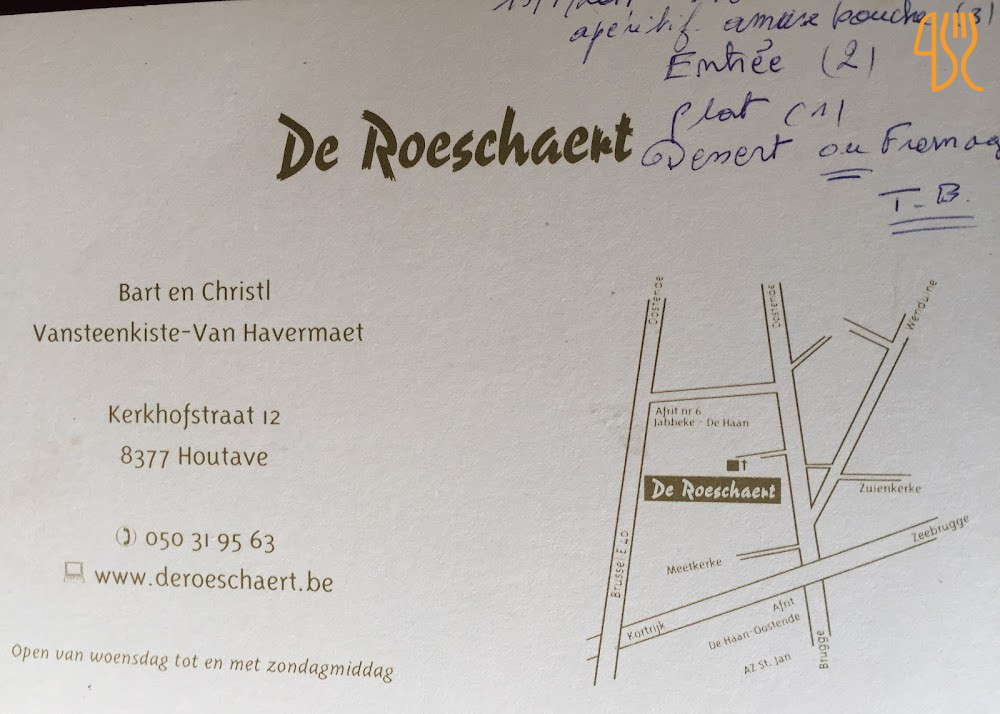 apéritif amuse bouche (3)
Entrée (2)
plat (1)
Dessert ou Fromag
T.B.
De Roeschaert
Bart en Christl
Vansteenkiste-Van Havermaet
Kerkhofstraat 12
8377 Houtave
050 31 95 63
www.deroeschaert.be
Open van woensdag tot en met zondagmiddag
Oostende
Oostende
Wenduine
Afrit nr 6
Jabbeke - De Haan
De Roeschaert
Zuienkerke
Brussel E 40
Meetkerke
Zeebrugge
Kortrijk
Afrit
De Haan-Oostende
AZ St. Jan
Brugge